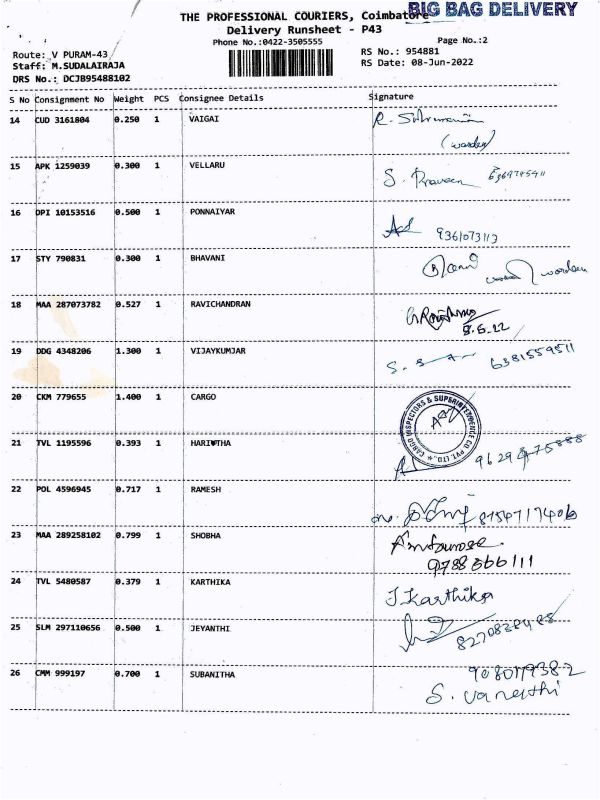 THE PROFESSIONAL COURIERS, Coimbatore
BIG BAG DELIVERY
Delivery Runsheet - P43
Phone No.:0422-3505555
Page No.:2
Route: V PURAM-43
RS No.: 954881
Staff: M.SUDALAIRAJA
RS Date: 08-Jun-2022
DRS No.: DCJB95488102
S No Consignment No Weight PCS Consignee Details Signature
14 CUD 3161804 0.250 1 VAIGAI
(warden)
15 APK 1259039 0.300 1 VELLARU S. Praveen
16 DPI 10153516 0.500 1 PONNAIYAR 9361073113
17 STY 790831 0.300 1 BHAVANI warden
18 MAA 287073782 0.527 1 RAVICHANDRAN
8.6.22
19 DDG 4348206 1.300 1 VIJAYKUMJAR 6381559511
20 CKM 779655 1.400 1 CARGO
CARGO INSPECTORS & SUPERINTENDENCE CO PVT. LTD.
21 TVL 1195596 0.393 1 HARIVTHA
22 POL 4596945 0.717 1 RAMESH
23 MAA 289258102 0.799 1 SHOBHA
9788366111
24 TVL 5480587 0.379 1 KARTHIKA J. Karthika
25 SLM 297110656 0.500 1 JEYANTHI
26 CMM 999197 0.700 1 SUBANITHA 9080179382